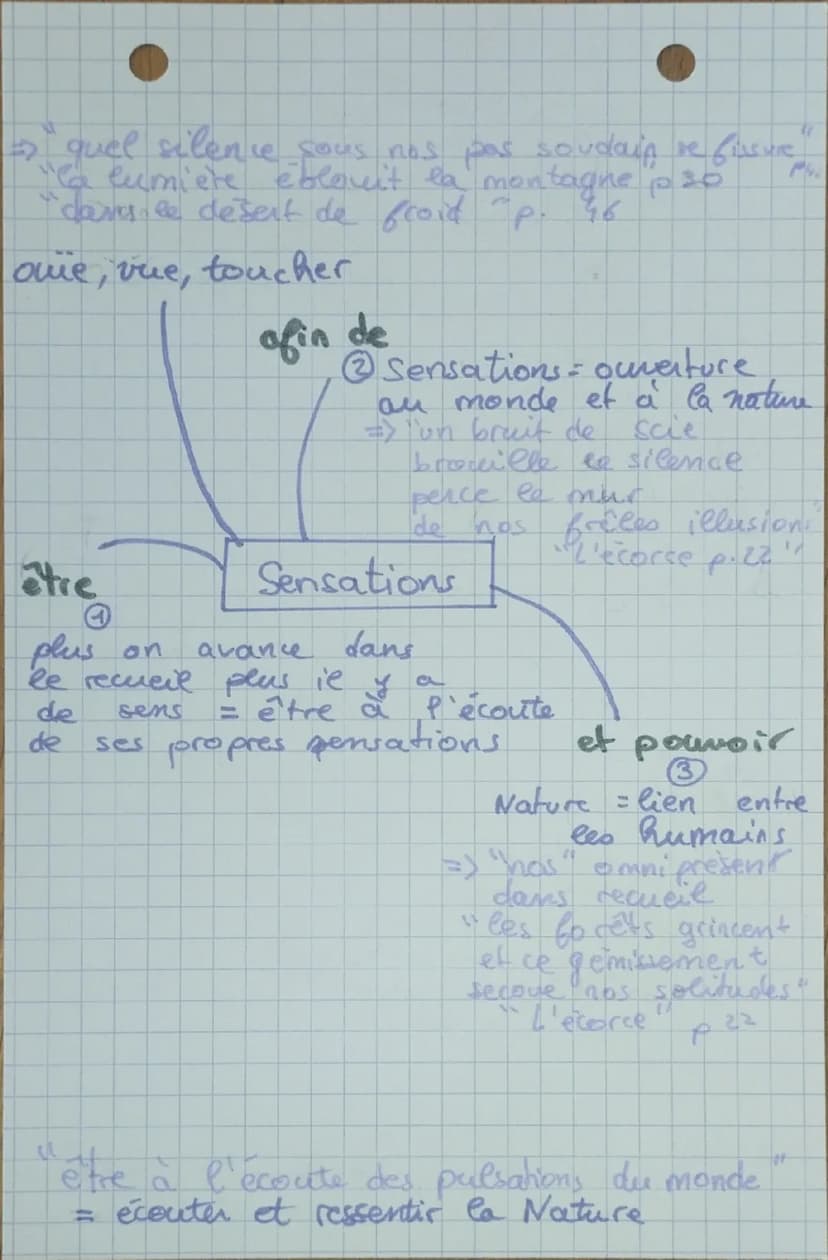 => "quel silence sous nos pas soudain se fissure"
"la lumière éblouit la montagne" p 20
"dans le désert de froid" p. 46
ouïe, vue, toucher
afin de
② Sensations = ouverture
au monde et à la nature
=> "un bruit de scie
brouille le silence
perce le mur
de nos frêles illusions"
"L'écorce p.22"
Sensations
être
①
plus on avance dans
le recueil plus il y a
de sens = être à l'écoute
de ses propres sensations
et pouvoir
③
Nature = lien entre
les humains
=> "nos" omniprésent
dans recueil
"les forêts grincent
et ce gémissement
secoue nos solitudes"
"L'écorce" p 22
"être à l'écoute des pulsations du monde"
= écouter et ressentir la Nature